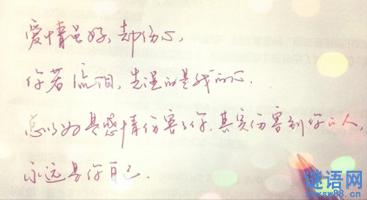 爱情虽好,却伤心,
你若流泪,先湿的是我的心.
总以为是感情伤害了你,其实伤害到你的人,
永远是你自己.
谜语网